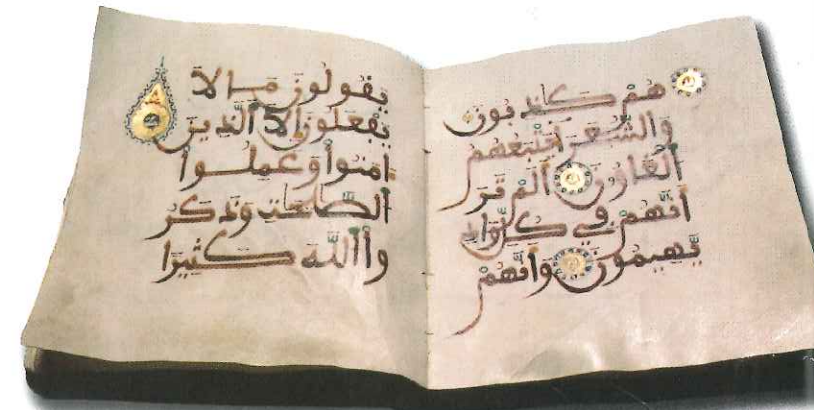 هم كاذبون
والشعرا يتبعهم
الغاون ألم تر
أنهم في كل واد
يهيمون وأنهم
يقولون ما لا
يفعلون إلا الذين
امنوا وعملوا
الصالحات وذكر
وا الله كثيرا